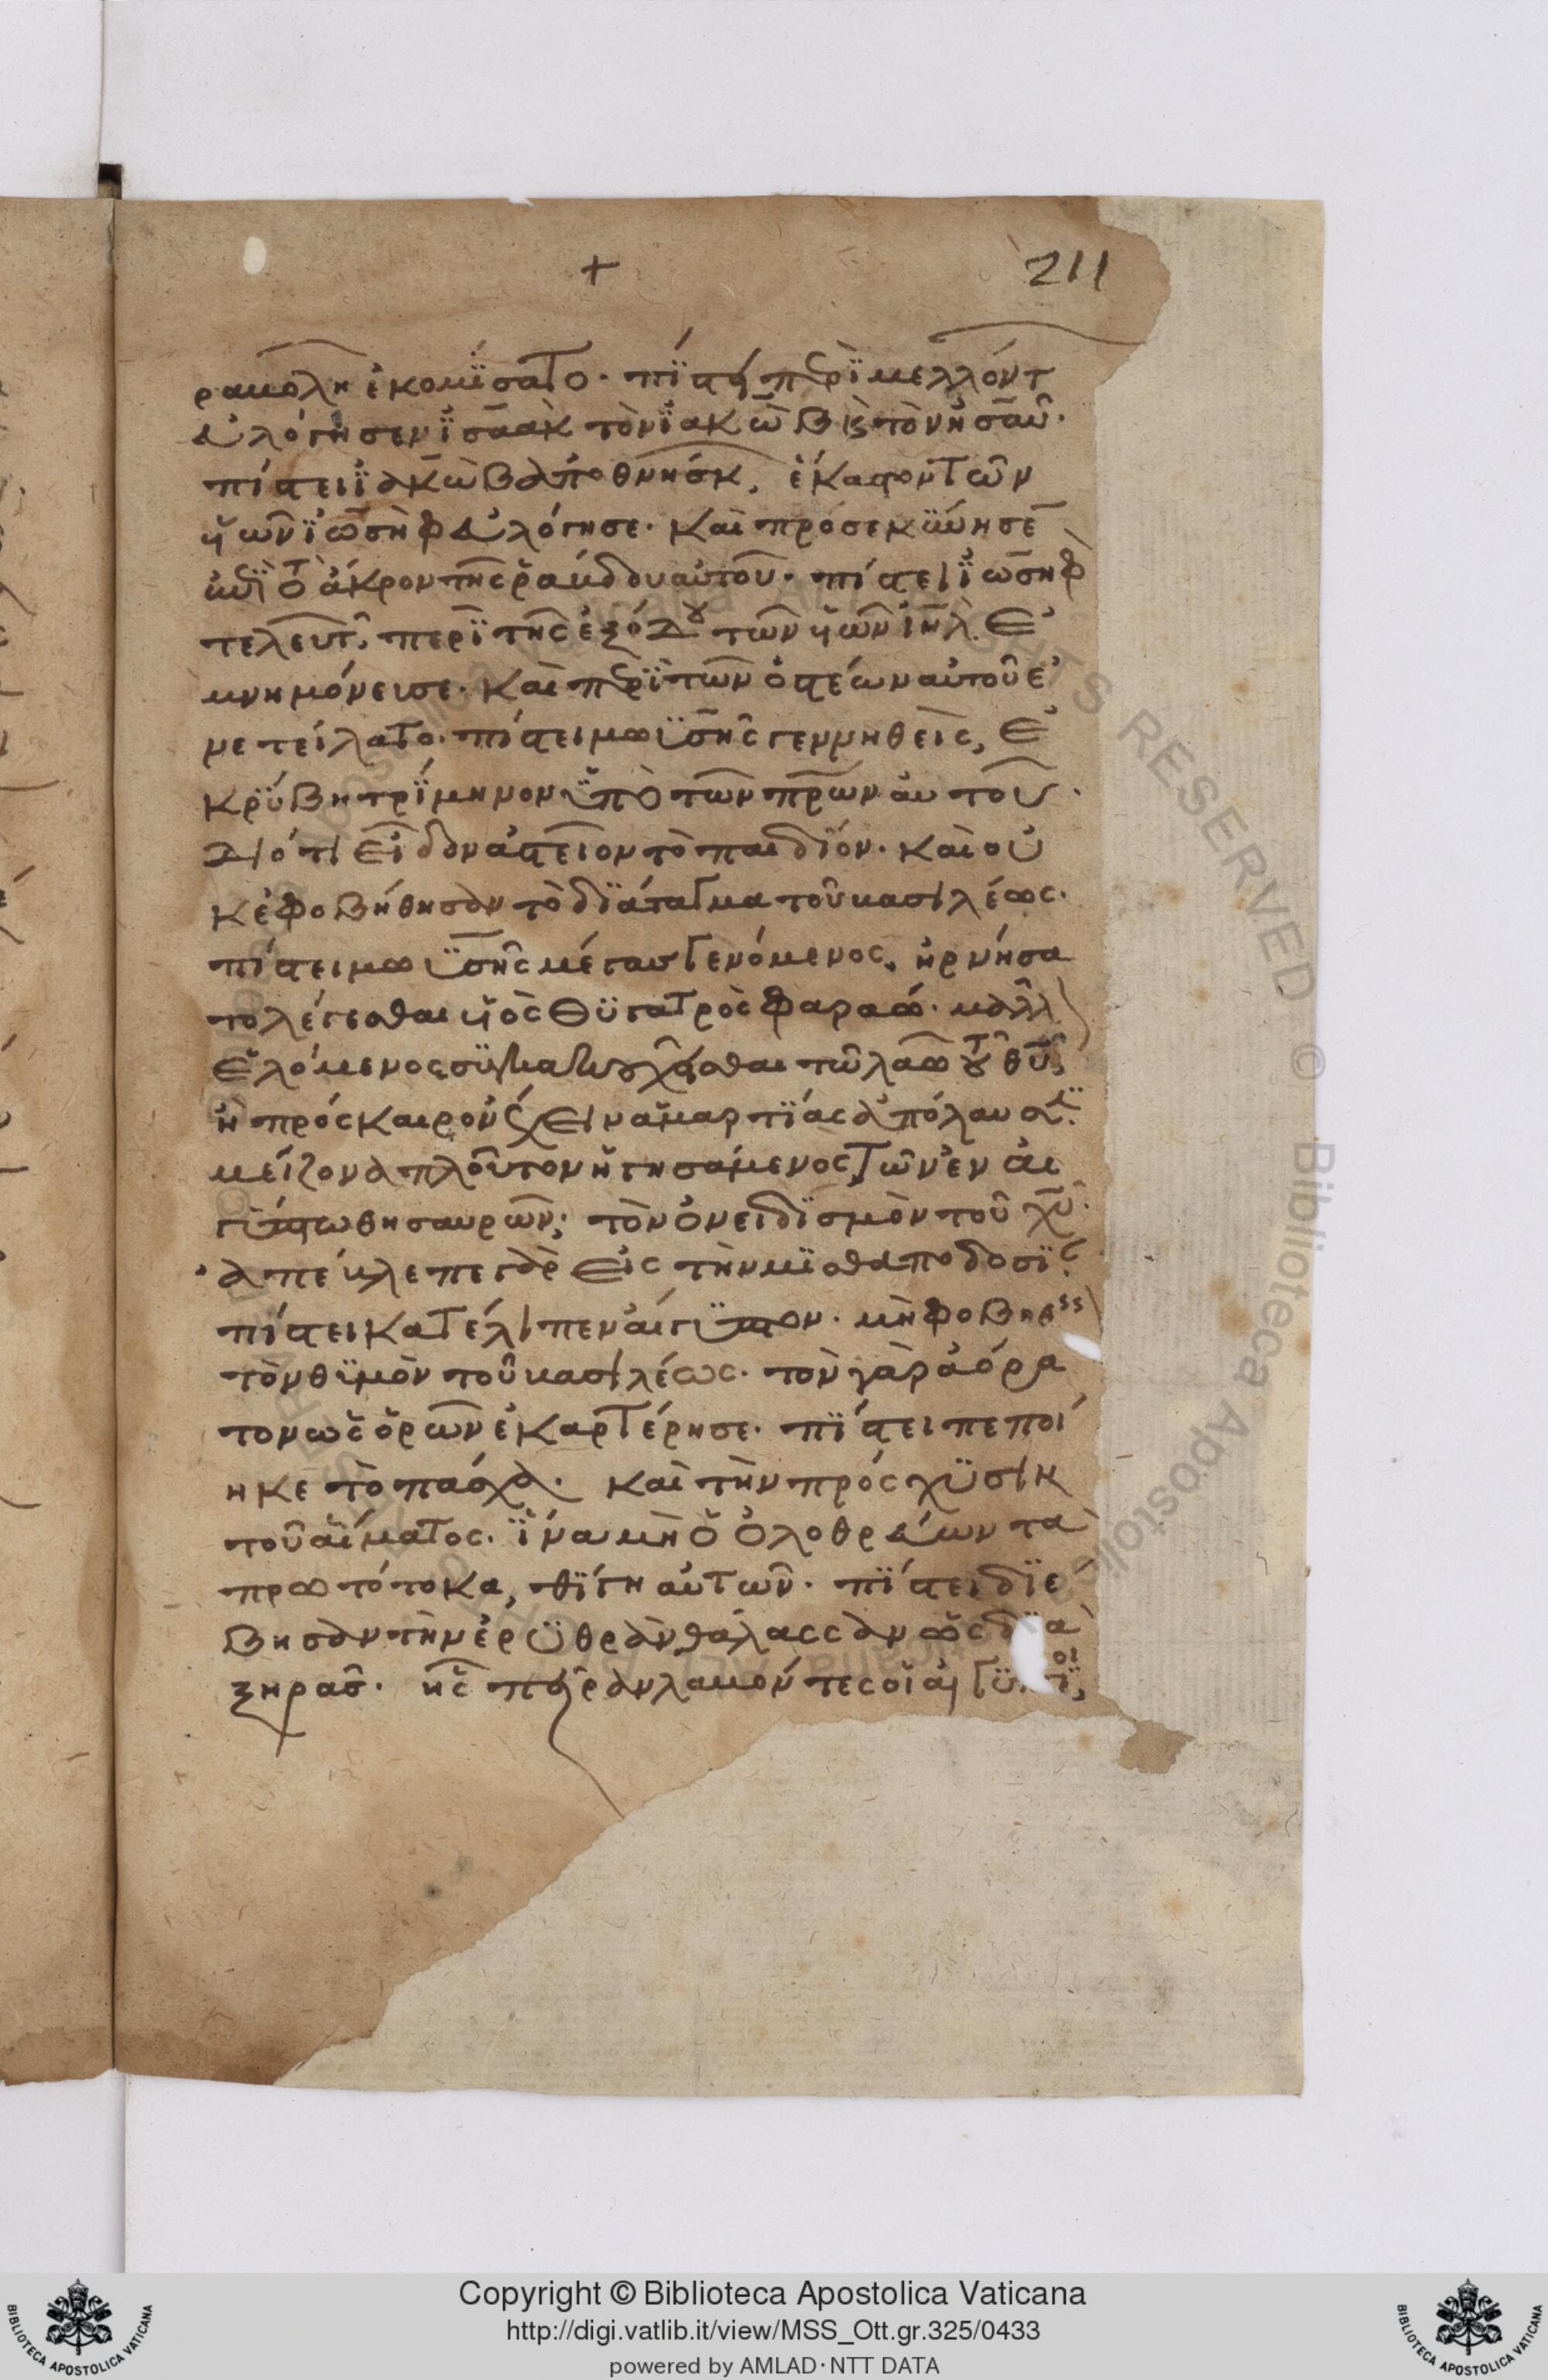 +
211
ραβολῆ ἐκομίσατο. πίστει περὶ μελλόντ
εὐλόγησεν ἰσαὰκ τὸν ἰακὼβ κ τὸν ἠσαῦ.
πίστει ἰακὼβ ἀποθνήσκ, ἕκαστον τῶν
ὑῶν ἰωσὴφ εὐλόγησε. καὶ προσεκύνησε
ἐπὶ τὸ ἄκρον τῆς ῥάβδου αὐτοῦ. πίστει ἰωσὴφ
τελευτ, περὶ τῆς ἐξόδου τῶν ὑῶν ἰηλ ἐ
μνημόνευσε. καὶ περὶ τῶν ὀστέων αὐτοῦ ἐ
νετείλατο. πίστει μωϋσῆς γεννηθεὶς, ἐ
κρύβη τρίμηνον ὑπὸ τῶν πρων αὐτοῦ.
διότι εἶδον ἀστεῖον τὸ παιδίον. καὶ οὐ
κ ἐφοβήθησαν τὸ διάταγμα τοῦ βασιλέως.
πίστει μωϋσῆς μέγας γενόμενος, ἠρνήσα
το λέγεσθαι ὑὸς θυγατρὸς φαραώ. μᾶλλ
ἑλόμενος συγκακουχεῖσθαι τῶ λαῶ τοῦ θυ,
ἢ πρόσκαιρον ἔχειν ἁμαρτίας ἀπόλαυσι.
μείζονα πλοῦτον ἡγησάμενος τῶν ἐν αἰ
γύπτω θησαυρῶν, τὸν ὀνειδισμὸν τοῦ χυ.
ἀπέβλεπε γὰρ εἰς τὴν μισθαποδοσί.
πίστει κατέλιπεν αἴγυπτον. μὴ φοβηθ
τὸν θυμὸν τοῦ βασιλέως. τὸν γὰρ ἀόρα
τον ὡς ὁρῶν ἐκαρτέρησε. πίστει πεποί
ηκε τὸ πάσχα. καὶ τὴν πρόσχυσιν
τοῦ αἵματος. ἵνα μὴ ὁ ὀλοθρεύων τὰ
πρωτότοκα, θίγη αὐτῶν. πίστει διέ
βησαν τὴν ἐρυθρὰν θάλασσαν ὡς διὰ
ξηρᾶς. ἧς πεῖραν λαβόντες οἱ αἰγύπτι,
Copyright © Biblioteca Apostolica Vaticana
http://digi.vatlib.it/view/MSS_Ott.gr.325/0433
powered by AMLAD·NTT DATA